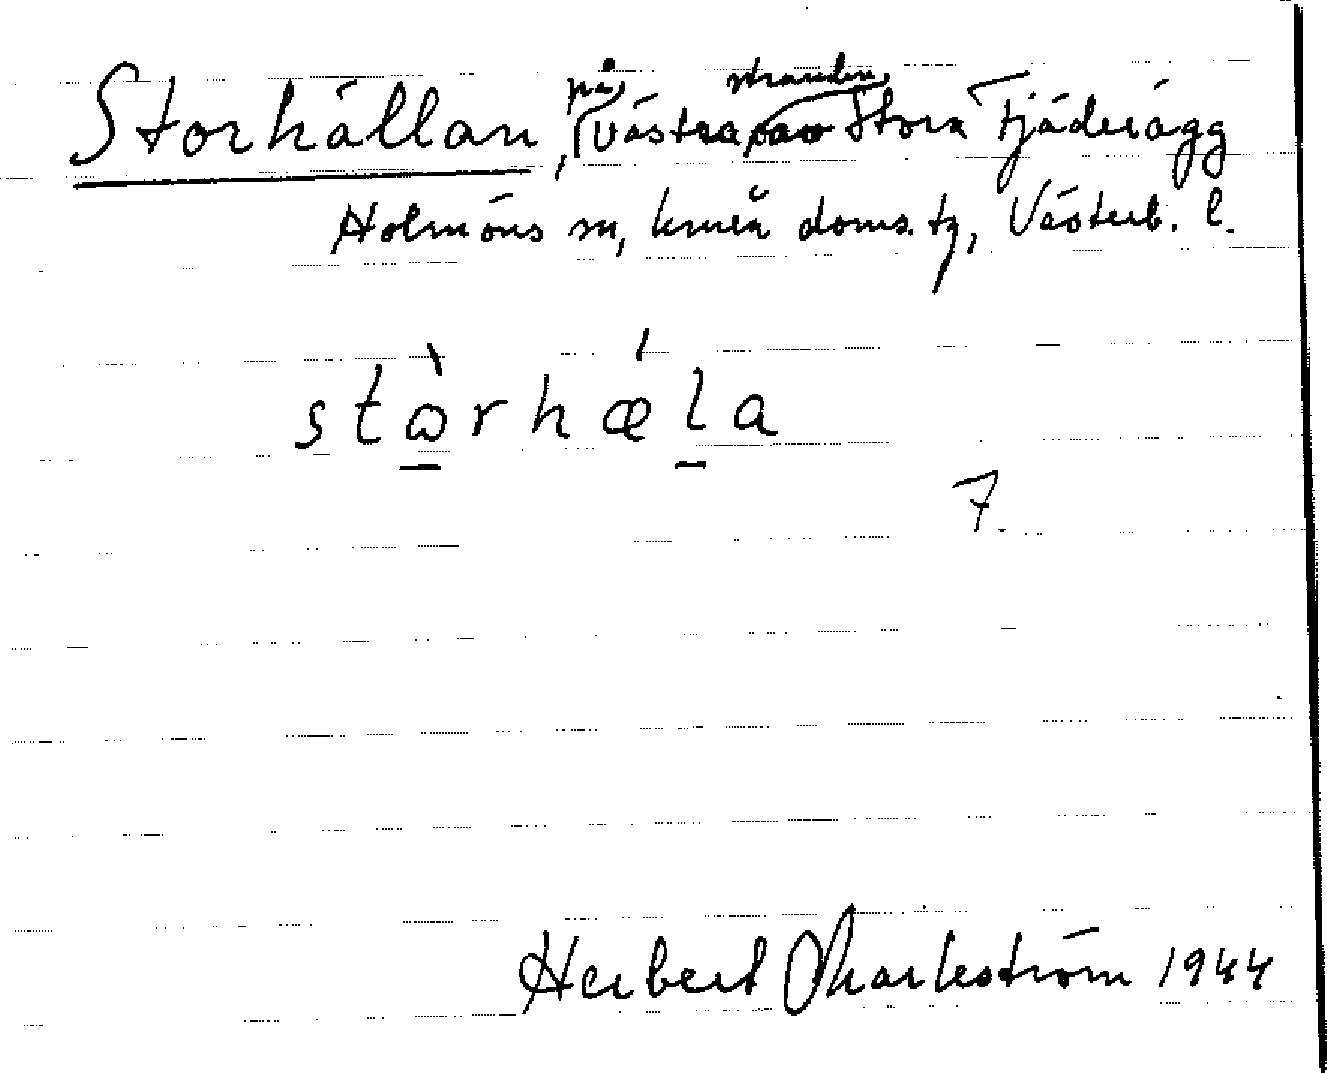 Storhällan, på västra stranden Stora Fjäderägg
Holmöns sn, Umeå doms. tg, Västerb. l.
stὼrhǽla
7.
Herbert Markström 1944